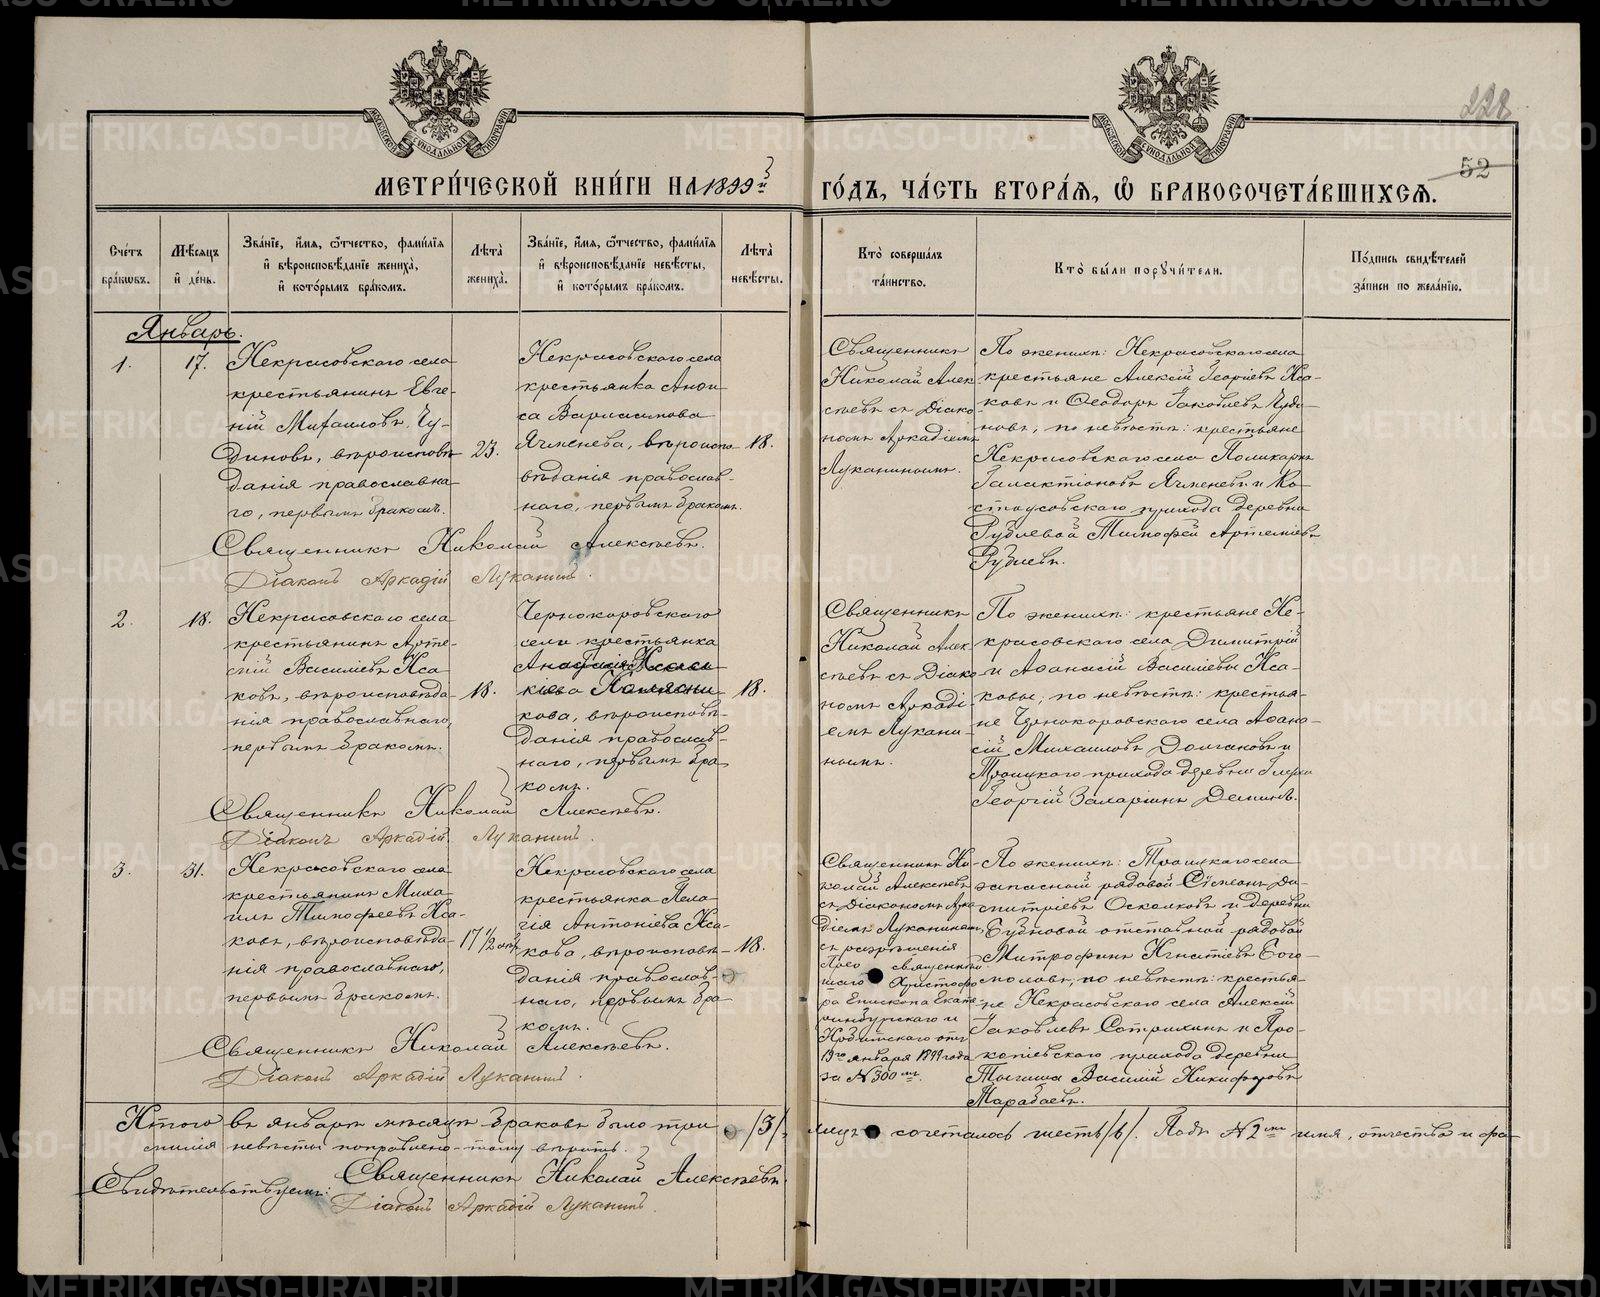 222
52
МЕТРИ́ЧЕСКОЙ КНИ́ГИ НА 1899й ГО́ДЪ, ЧА́СТЬ ВТОРА́Я, Ѽ БРАКОСОЧЕТА́ВШИХСЯ.
Сче́тъ бра́ковъ.
Мѣ́сяцъ и҆ де́нь.
Зва́нїе, и҆́мя, ѻ҆́тчество, фами́лїя и҆ вѣроисповѣ́данїе жениха̀, и҆ кото́рымъ бра́комъ.
Лѣ́та жениха̀.
Зва́нїе, и҆́мя, ѻ҆́тчество, фами́лїя и҆ вѣроисповѣ́данїе невѣ́сты, и҆ кото́рымъ бра́комъ.
Лѣ́та невѣ́сты.
Кто̀ соверша́лъ та́инство.
Кто̀ бы́ли порꙋчи́тели.
По́дпись свидѣ́телей за́писи по жела́нїю.
Январь.
1.
17.
Некрасовскаго села
крестьянинъ Евге-
ній Михаиловъ Чу-
диновъ, вѣроисповѣ
данія православна-
го, первымъ бракомъ.
23.
Некрасовскаго села
крестьянка Анфи
са Варлаамова
Ячменева, вѣроиспо-
вѣданія православ-
наго, первымъ бракомъ.
18.
Священникъ
Николай Алек
сѣевъ съ Діако-
номъ Аркадіемъ
Луканинымъ.
По женихѣ: Некрасовскаго села
крестьяне Алексій Георгіевъ Иса-
ковъ и Ѳеодоръ Іаковлевъ Чуди-
новъ, по невѣстѣ: крестьяне
Некрасовскаго села Поликарпъ
Галактіоновъ Ячменевъ и Ко-
стоусовскаго прихода деревни
Рублевой Тимофей Артеміевъ
Рублевъ.
Священникъ Николай Алексѣевъ.
Діаконъ Аркадій Луканинъ.
2.
18.
Некрасовскаго села
крестьянинъ Арте-
мій Василіевъ Иса-
ковъ, вѣроисповѣда-
нія православнаго,
первымъ бракомъ.
18.
Чернокоровскаго
села крестьянка
кова, вѣроисповѣ-
данія православ-
наго, первымъ бра-
комъ.
18.
Священникъ
Николай Алек
сѣевъ съ Діако-
номъ Аркаді-
емъ Лукани-
нымъ.
По женихѣ: крестьяне Не-
красовскаго села Димитрій
и Аѳанасій Василіевы Иса-
ковы; по невѣстѣ: крестья-
не Чернокоровскаго села Аѳана-
сій Михаиловъ Долгановъ и
Троицкаго прихода деревни
Георгій Захаріинъ Деминъ.
Священникъ Николай Алексѣевъ.
Діаконъ Аркадій Луканинъ.
3.
31.
Некрасовскаго села
крестьянинъ Миха-
илъ Тимофеевъ Иса-
ковъ, вѣроисповѣда-
нія православнаго,
первымъ бракомъ.
17 1/2 лѣтъ
Некрасовскаго села
крестьянка Пела-
гія Антоніева Иса-
кова, вѣроисповѣ-
данія православ-
наго, первымъ бра-
комъ.
18.
Священникъ Ни-
колай Алексѣевъ
съ Діакономъ Арка
діемъ Луканинымъ,
съ разрѣшенія
Преосвященнѣй
шаго Христофо
ра Епископа Екате-
ринбургскаго и
Ирбитскаго отъ
13го января 1899 года
за № 300мъ.
По женихѣ: Троицкаго села
запасный рядовой Сѵмеонъ Ди-
митріевъ Осколковъ и деревни
Бубновой отставной рядовой
Митрофанъ Игнатіевъ Бого-
моловъ, по невѣстѣ: крестья-
не Некрасовскаго села Алексій
Іаковлевъ Сотринъ и Про-
копіевскаго прихода деревни
Тыгиша Василій Никифоровъ
Тарабаевъ.
Священникъ Николай Алексѣевъ.
Діаконъ Аркадій Луканинъ.
Итого въ январѣ мѣсяцѣ браковъ было три /3/, лицъ сочеталось шесть /6/. Подъ № 2мъ имя, отчество и фа-
милія невѣсты поправлено - тому вѣрить.
Свидѣтельствуемъ: Священникъ Николай Алексѣевъ.
Діаконъ Аркадій Луканинъ.
METRIKI.GASO-URAL.RU